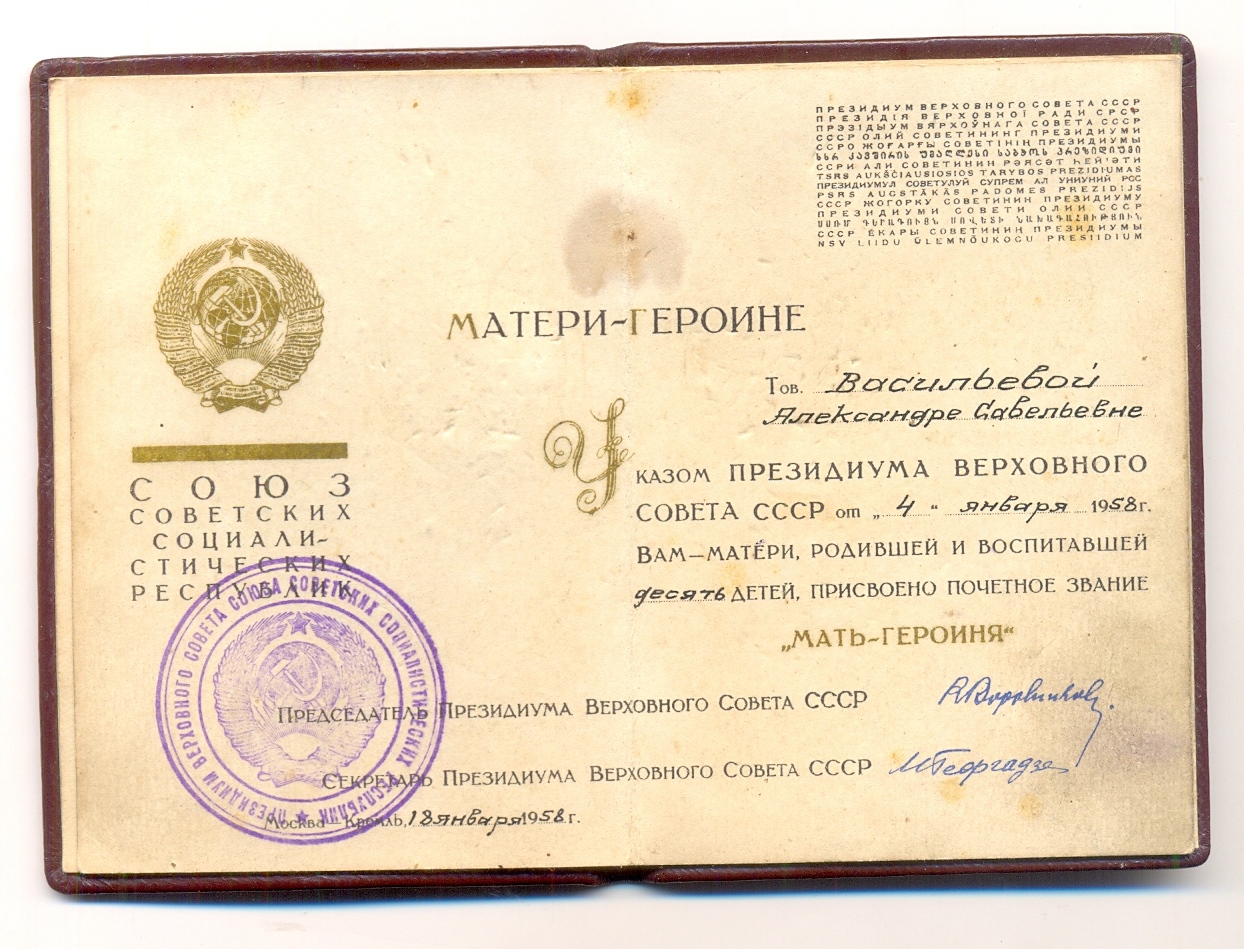 ПРЕЗИДИУМ ВЕРХОВНОГО СОВЕТА СССР
ПРЕЗИДІЯ ВЕРХОВНОЇ РАДИ СРСР
ПРЭЗІДЫУМ ВЯРХОЎНАГА СОВЕТА СССР
СССР ОЛИЙ СОВЕТИНИНГ ПРЕЗИДИУМИ
ССРО ЖОҒАРҒЫ СОВЕТІНІҢ ПРЕЗИДИУМЫ
სსრ კავშირის უმაღლესი საბჭოს პრეზიდიუმი
ССРИ АЛИ СОВЕТИНИН РӘЈАСӘТ ҺЕЙ'ӘТИ
TSRS AUKŠČIAUSIOSIOS TARYBOS PREZIDIUMAS
ПРЕЗИДИУМУЛ СОВЕТУЛУЙ СУПРЕМ АЛ УНИУНИЙ РСС
PSRS AUGSTĀKĀS PADOMES PREZIDIJS
СССР ЖОГОРКУ СОВЕТИНИН ПРЕЗИДИУМУ
ПРЕЗИДИУМИ СОВЕТИ ОЛИИ СССР
ՍՍՌՄ ԳԵՐԱԳՈՒՅՆ ՍՈՎԵՏԻ ՆԱԽԱԳԱՀՈՒԹՅՈՒՆ
СССР ЁКАРЫ СОВЕТИНИҢ ПРЕЗИДИУМЫ
NSV LIIDU ÜLEMNÕUKOGU PRESIIDIUM
МАТЕРИ-ГЕРОИНЕ
Тов. Васильевой
Александре Савельевне
УКАЗОМ ПРЕЗИДИУМА ВЕРХОВНОГО
СОВЕТА СССР от „4“ января 1958 г.
ВАМ—МАТЕРИ, РОДИВШЕЙ И ВОСПИТАВШЕЙ
десять ДЕТЕЙ, ПРИСВОЕНО ПОЧЕТНОЕ ЗВАНИЕ
„МАТЬ-ГЕРОИНЯ“
СОЮЗ
СОВЕТСКИХ
СОЦИАЛИ-
СТИЧЕСКИХ
РЕСПУБЛИК
ПРЕЗИДИУМ ВЕРХОВНОГО СОВЕТА СОЮЗА СОВЕТСКИХ СОЦИАЛИСТИЧЕСКИХ РЕСПУБЛИК
ПРЕДСЕДАТЕЛЬ ПРЕЗИДИУМА ВЕРХОВНОГО СОВЕТА СССР
СЕКРЕТАРЬ ПРЕЗИДИУМА ВЕРХОВНОГО СОВЕТА СССР МГеоргадзе
Москва—Кремль, 18 января 1958 г.